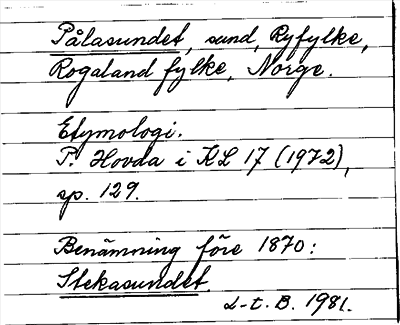 Pålasundet, sund, Ryfylke,
Rogaland fylke, Norge.
Etymologi.
P. Hovda i KL 17 (1972),
sp. 129.
Benämning före 1870:
Stekasundet.
L-t. B. 1981.